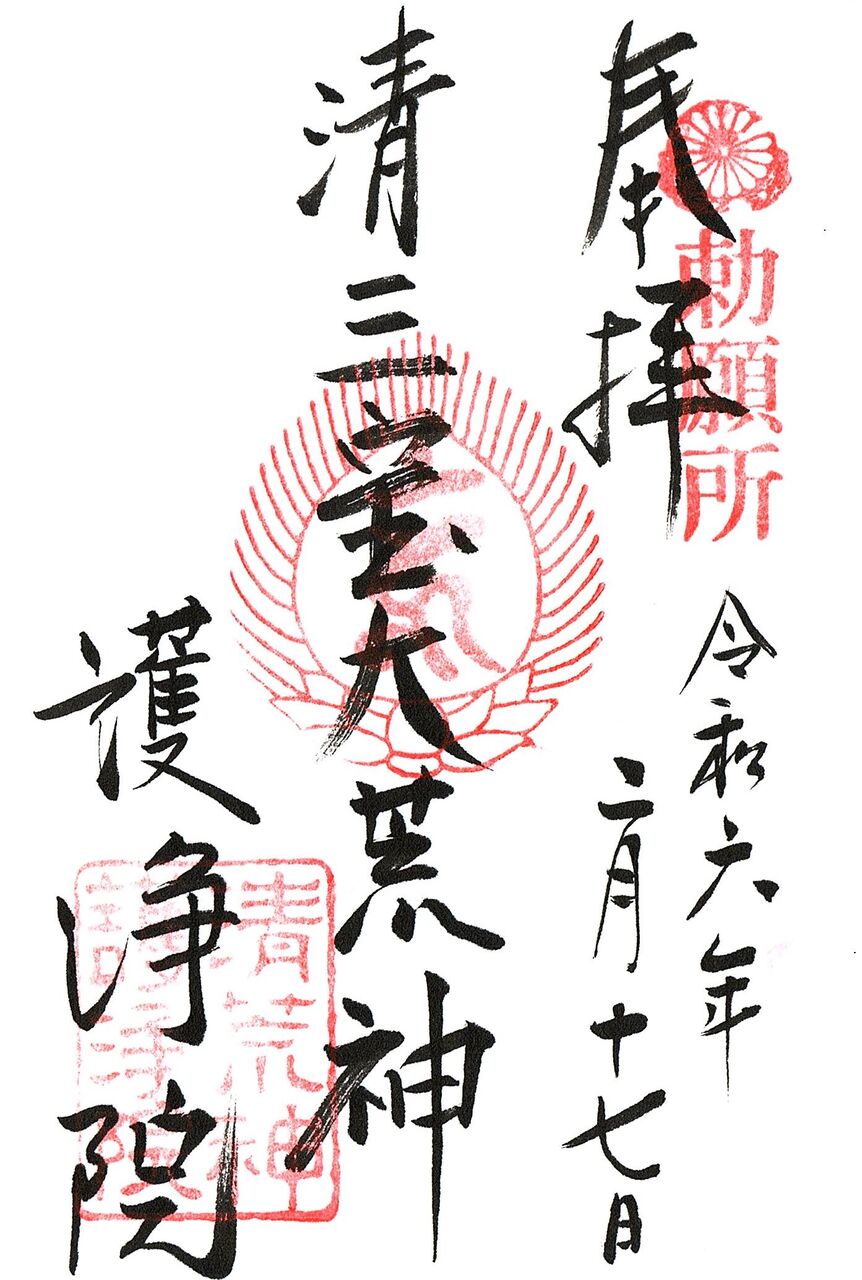 奉拝
勅願所
令和六年
二月十七日
清三宝大荒神
護浄院
清荒神
護浄院